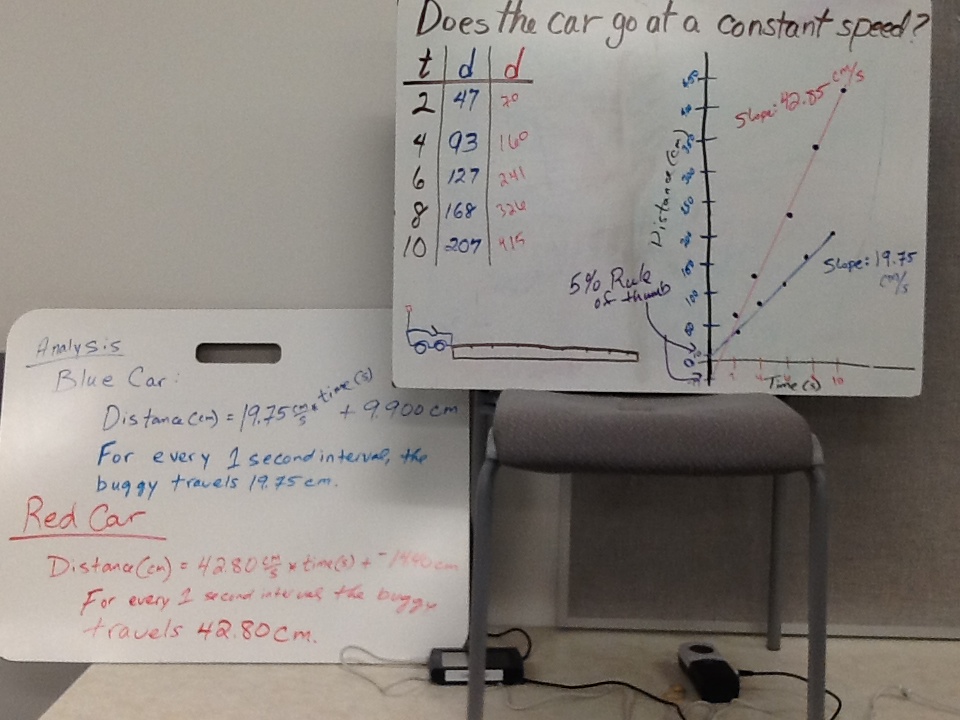 Does the car go at a constant speed?
t d d
2 47 70
4 93 160
6 127 241
8 168 326
10 207 415
Slope: 42.85 cm/s
Distance (cm)
Slope: 19.75
cm/s
5% Rule
of thumb
Time (s)
Analysis
Blue Car:
Distance (cm) = 19.75 cm/s * time (s) + 9.900 cm
For every 1 second interval, the
buggy travels 19.75 cm.
Red Car
Distance (cm) = 42.80 cm/s * time (s) + -14.40 cm
For every 1 second interval, the buggy
travels 42.80 cm.